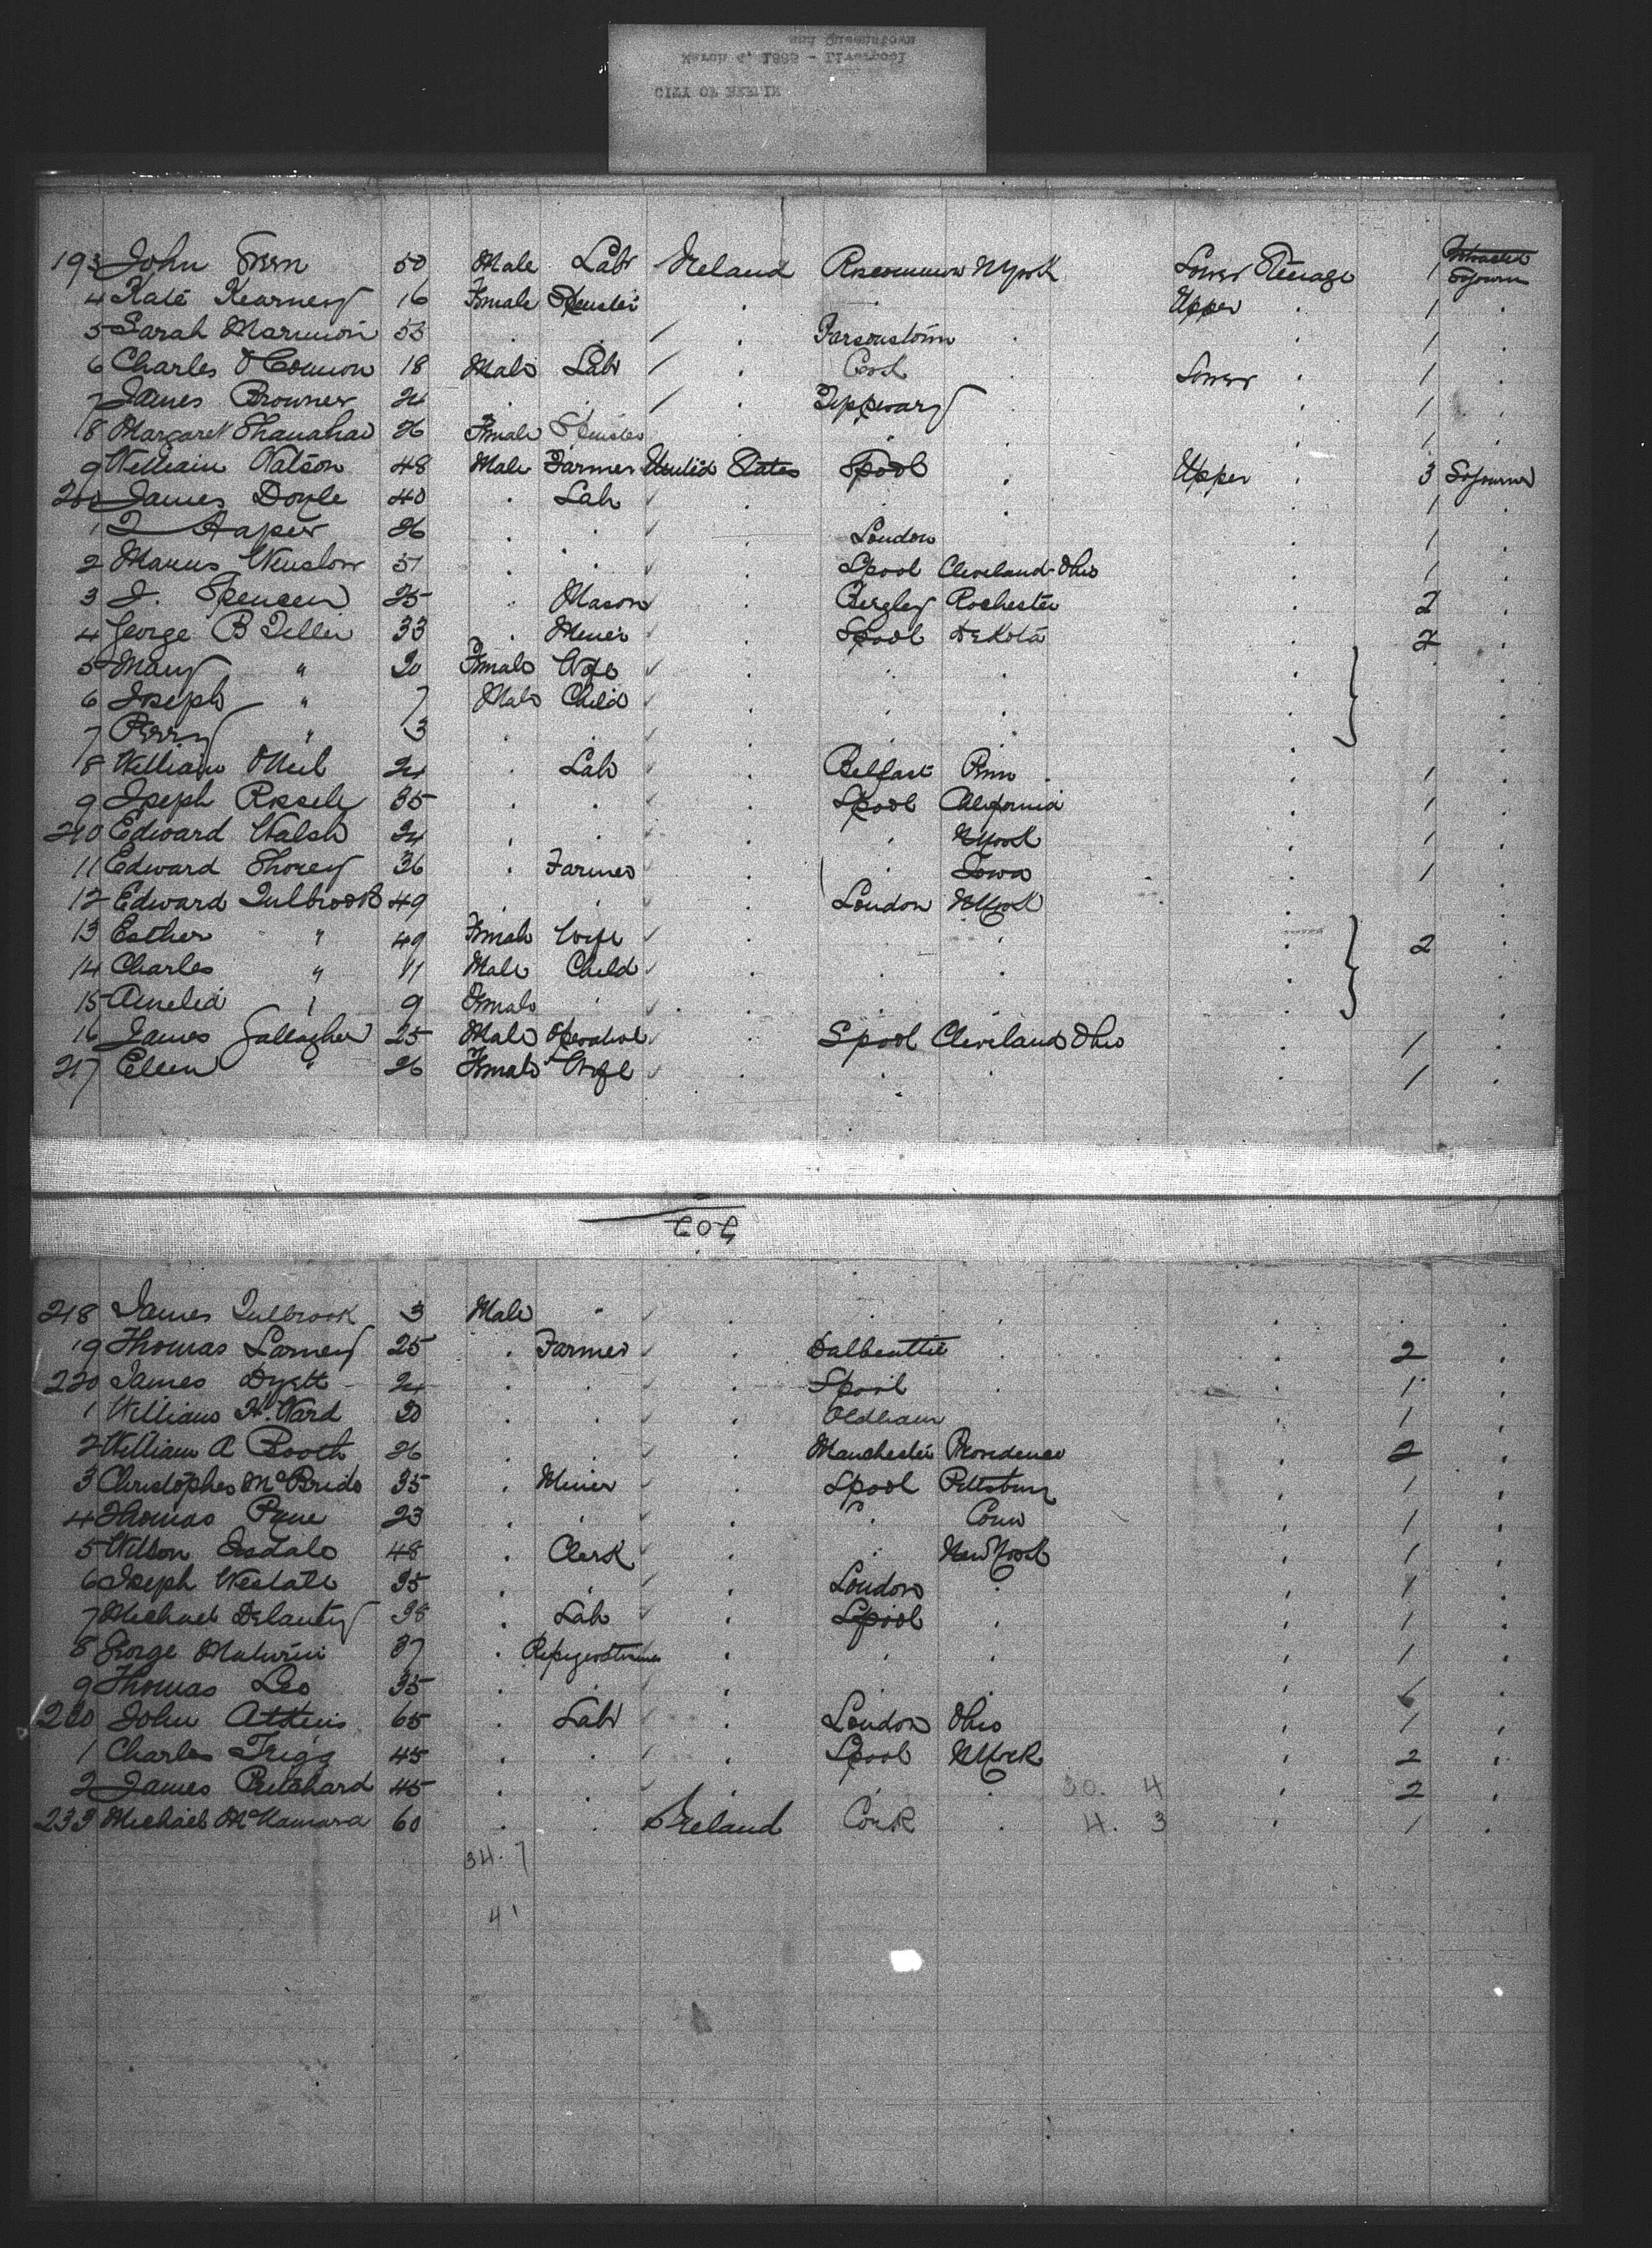 CITY OF BERLIN
March 6, 1893 - Liverpool
and Queenstown
193 John 50 Male Labr Ireland Roscommon NYork Lower Steerage 1 Sojourn
4 Kate Kearney 16 Female Spinster . . Upper . 1 .
5 Sarah 53 . . / . Parsonstown . 1
6 Charles O'Connor 18 Male Labr / . Cork . Lower . 1 .
7 James Browner 24 . . / . Tipperary . 1 .
8 Margaret Shanahan 26 Female Spinster . . . 1
9 William Watson 48 Male Farmer United States Lpool . Upper . 3 Sojourner
200 James Doyle 40 . Labr . . . . 1 .
1 26 . . . London . . 1 .
2 Marcus Winslow 51 . . . Lpool Cleveland Ohio . 1 .
3 J. Spencer 25 . Mason . Rochester . 2 .
4 George B Teller 33 . Miner . Lpool Dakota . 2 .
5 Mary " 30 Female Wife . . . .
6 Joseph " 7 Male Child . . . . .
7 Perry " 3 . . . . . . .
8 William ONeil 24 . Labr . Belfast Penn . 1 .
9 Joseph 35 . . . Lpool California . 1 .
210 Edward Walsh 24 . . . . NYork . 1 .
11 Edward Shorey 36 . Farmer . . Iowa . 1 .
12 Edward Tulbrook 49 . . . London NYork . .
13 Esther " 49 Female Wife . . . . 2 .
14 Charles " 11 Male Child . . . . .
15 Amelia " 9 Female . . . . . .
16 James Gallagher 25 Male Operative . Lpool Cleveland Ohio . 1 .
217 Ellen " 26 Female Wife . . . . 1 .
202
218 James Tulbrook 3 Male . . . . . .
19 Thomas Larney 25 . Farmer . Dalbeattie . . 2 .
220 James Dyett 24 . . . Lpool . . 1 .
1 William H. Ward 30 . . . Oldham . 1 .
2 William A Booth 26 . . . Manchester Providence . 2 .
3 Christopher McBride 35 . Miner . Lpool Pittsburg . 1 .
4 Thomas Pyne 23 . . . . Conn . 1 .
5 Wilson 48 . Clerk . . New York . 1 .
6 Joseph 35 . . . London . . 1 .
7 Michael Delanty 38 . Labr . Lpool . . 1 .
8 George 37 . . . . . 1 .
9 Thomas Leo 35 . . . . . . .
230 John Atkins 65 . Labr . London Ohio . 1 .
1 Charles Trigg 45 . . . Lpool NYork . 2 .
2 James Pritchard 45 . . . . . 30. 4 . 2 .
233 Michael McNamara 60 . . Ireland Cork . 4. 3 . 1 .
34. 7
41